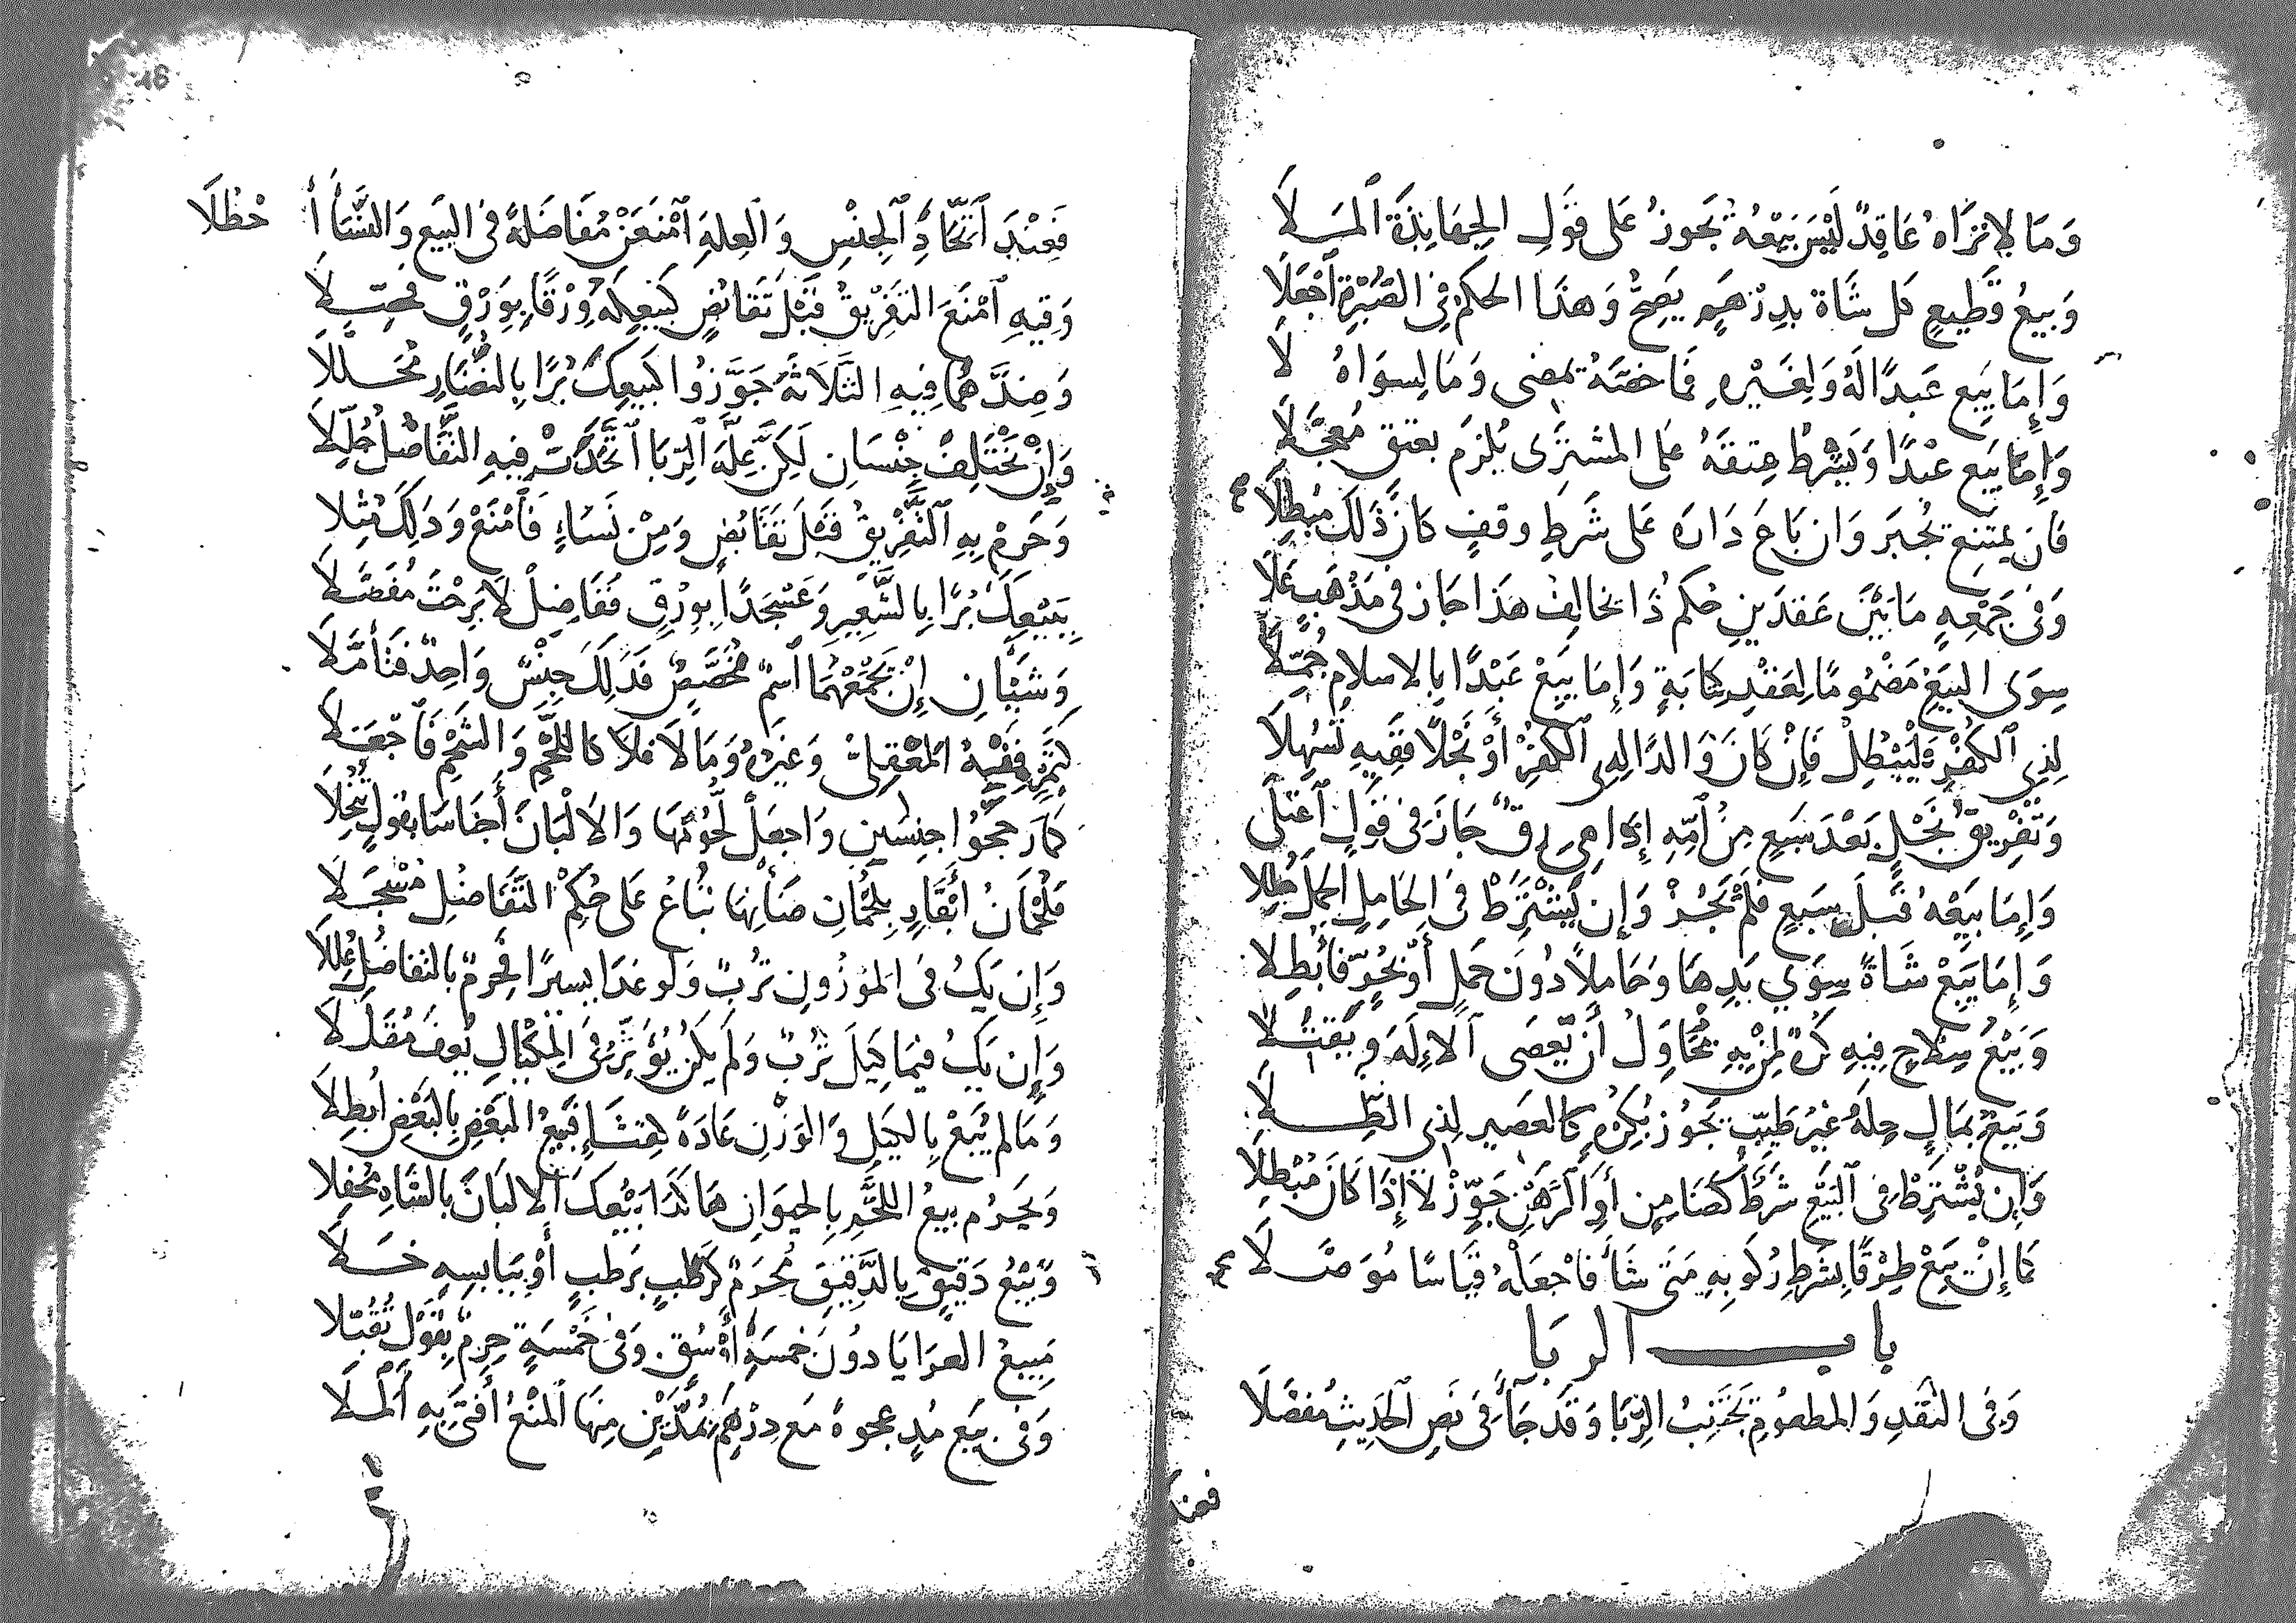 وَمَا لا نراهُ عَاقِدٌ لَيْسَ بَيْعُهُ يَجُوزُ عَلى قَولِ الجهابذةِ المَلَا
وَبَيعُ قَطِيعٍ كل شَاة بدِرْهَمٍ يَصِحُّ وَهذَا الحكم فِي الصُّبْرَةِ اجْعَلَا
وَإِمَا يَبِع عَبدًا لَهُ وَلِغَيْرِهِ فمَا خصَّهُ يمضى وَمَا لِسِوَاهُ لَا
وَإِمَّا يَبِع عَبْدًا وَيَشْرِطُ عِتقَهُ عَلى المشترَى يُلزَم بعتق مُعجَّلَا
فَان يمتنِع يُجبَر وَان بَاعَ دَارَه عَلى شَرطِ وقفٍ كَانَ ذَلكَ مبْطِلَا
وَفى جَمْعِهِ مَا بَيْنَ عَقدَينِ حُكم ذَا يخالِفُ هَذَا جَاز فى مَذْهَبٍ عَلَا
سِوَى البَيعِ مَضْمُومًا لِعَقْدِ كِتَابَةٍ وَإِمَا يَبِعْ عَبْدًا بِالاسلام جُمِّلَا
لِذِى الكُفْرِ فليَبْطُلْ فَإِنْ كَانَ وَالدًا لِذِى الكُفْرِ أَوْ نَجْلًا فَفِيهِ تَسَهَّلَا
وَتَفْرِيقُ نَجْلٍ بَعْدَ سَبعٍ مِن امّه إذا هِىَ رِقٌّ جَازَ فى قَولٍ اعْتَلَى
وَإِمَا يَبِعْهُ قَبلَ سبعٍ فَلَمْ يَجُزْ وَإِن يَشْتَرِطْ فى الحَامِلِ الحملَ بطلا
وَإِمَا يَبِعْ شَاةً سِوَى يَدِهَا وَحَامِلاً دُونَ حَملٍ أَوْ بحُرٍّ فَأَبْطِلا
وَبَيْعُ سِلاحٍ فِيهِ كُرْهٌ لِمَن بِهِ يُحَاوِلُ أَنْ يَعصَى الاِلَهَ وَيَقتُلَا
وَبَيعٌ بِمَالٍ حِلّهُ غَيْرُ طَيِّبٍ يَجُوز بكُرْهٍ كَالعَصِيرِ لِذِى الطِّلَا
وَإِن يُشْتَرِطْ فى البَيْعِ شَرطٌ كَضَامِنٍ أَوِ الرَّهْنِ جَوِّزْ لَا إِذَا كَانَ مُبْطِلَا
كَمَا إِنْ يَبِعْ طِرْفًا بشَرطِ رُكُوبِهِ مَتَى شَاءَ فَاجْعَلْهُ قِيَاسًا مُوَصَّلَا
باب الربَا
وَفى النَّقدِ وَالمطعُومِ يَجْتَنِبُ الرِّبَا وَقَد جَاءَ فى نَصِ الحَدِيثِ مُفَصَّلَا
فعند
فَعِنْدَ اتِّحَادِ الجِنْسِ وَالعِلّةِ امْنَعَنْ مُفَاضَلَةً فى البَيعِ وَالنَّسَاءُ أ حْظُلَا
وَفيهِ امْنَعَ التَفْرِيقَ قَبْلَ تَقَابُضٍ كَبَيعِكَهُ وِرْقًا بِوِرْقٍ فحَصِّلَا
وَضِدُّهُمَا فِيهِ الثَّلَاثَةُ جَوَّزُوا كَبَيعِكَ بُرًّا بِالنُّضَارِ مُحَلَّلَا
وَإِنْ يَخْتَلِفْ جِنْسَانِ لَكِنَّ عِلَّةَ الرِّبَا اتَّحَدَتْ فِيهِ التَّفَاضُلُ حُلِّلَا
وَحَرِّمْ بِهِ التَّفْرِيقَ قَبْلَ تَقَابُضٍ وَمِنْ نَسَاءٍ فَامْنَعْ وَذَلِكَ مَثِّلا
بِبَيْعِكَ بُرًّا بِالشَّعِيرِ وَعَسْجَدًا بِوِرْقٍ فَفَاضِلْ لَا بَرِحْتَ مُفَضَّلَا
وَشَيْئَانِ إِنْ يَجْمَعْهُمَا اسمٌ مُخَصَّصٌ فَذَلِكَ جِنْسٌ وَاحِدٌ فَتَأَمَّلَا
كَتَمْرٍ فَفِيهِ المَعْقِلِىُّ وَغَيْرُهُ وَمَا لَا فلا كَاللَّحْمِ وَالشَّحْمِ فَاجْعَلَا
كمَا رَجَّحُوا جنسَينِ وَاجعَلْ لُّحُومَهَا وَالالْبَانَ أَجنَاسًا بقولٍ
فَلُحْمَانُ أَبْقَارٍ بِلُحْمَانِ ضَأْنِهَا تُبَاعُ عَلى حُكمِ التَّفَاضُلِ مُسْجَلَا
وَإِن يَكُ فى المَوزُونِ تُربٌ وَلَو غَدَا يسيرًا فحَرّمْ بالتفاضُلِ
وَإِن يَكُ فيمَا كِيلَ تُرْبٌ وَلَم يكُن يُؤَثِّرُ فى المِكْيَالِ
وَمَالم يُبَعْ بِالكَيلِ وَالوَزْنِ عَادَةً كقِثَّاء فَبَيعُ البَعْضِ بِالبَعْضِ ابْطِلَا
وَيَحْرُم بيعُ اللَّحْمِ بِالحيَوَانِ هَاكَذَا بَيْعُكَ الالبَانَ بالشَّاةِ مُحْفِلَا
وَبَيْعُ دَقِيقٍ بِالدَّقِيقِ مُحَرَّمٌ كَرَطْبٍ بِرَطبٍ أَوْ بِيَابسِهِ خَلَا
مَبِيعُ العرَايَا دُونَ خَمسَةِ أَوْسُقٍ وَفى خَمْسَةٍ حَرِّمْ بِقَوْلٍ تُقُبّلَا
وَفى بَيعِ مُدٍ عجوةً مَع دِرْهَمٍ بمُدَّيْنِ مِنهَا المَنْعُ أَفتَى بِهِ المَلَا